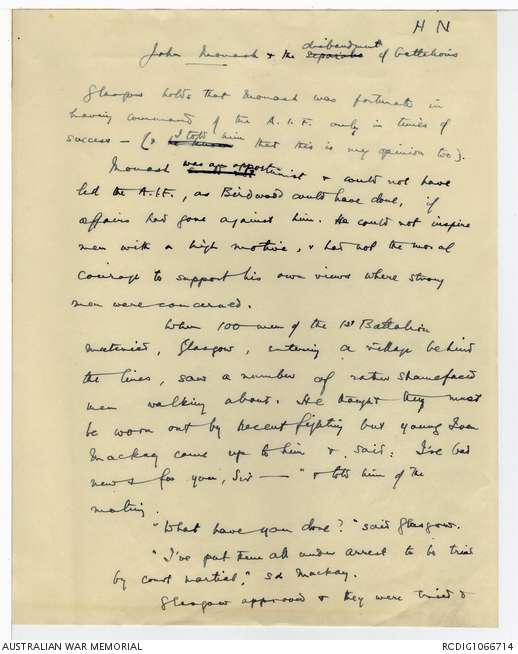 H N
John Monash & the disbandment of battalions
Glasgow holds that Monash was fortunate in
having command of the A.I.F. only in times of
success — (& I told him that this is my opinion too).
Monash was an opportunist & could not have
led the A.I.F., as Birdwood could have done, if
affairs had gone against him. He could not inspire
men with a high motive, & had not the moral
courage to support his own views where strong
men were concerned.
When 100 men of the 1st Battalion
mutinied, Glasgow, entering a village behind
the lines, saw a number of rather shamefaced
men walking about. He thought they must
be worn out by recent fighting but young Ivan
Mackay came up to him & said: I've bad
news for you, Sir — " & told him of the
mutiny.
"What have you done?" said Glasgow.
"I've put them all under arrest to be tried
by court martial," sd Mackay.
Glasgow approved & they were tried &
AUSTRALIAN WAR MEMORIAL
RCDIG1066714